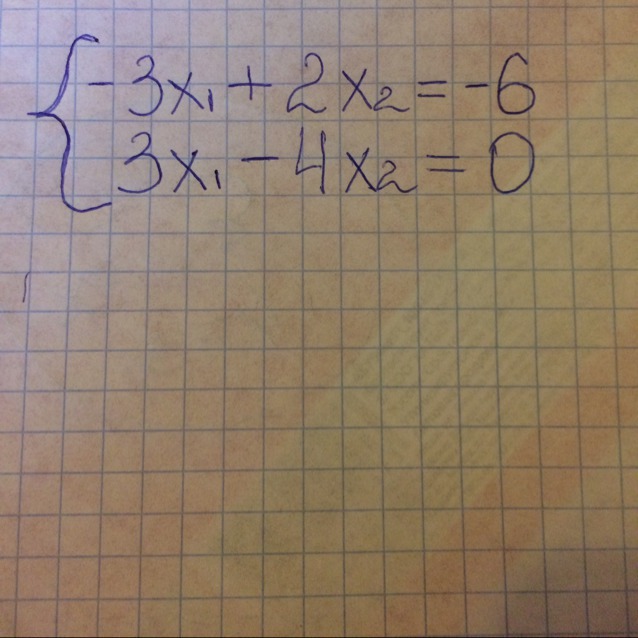 -3x₁ + 2x₂ = -6
3x₁ - 4x₂ = 0